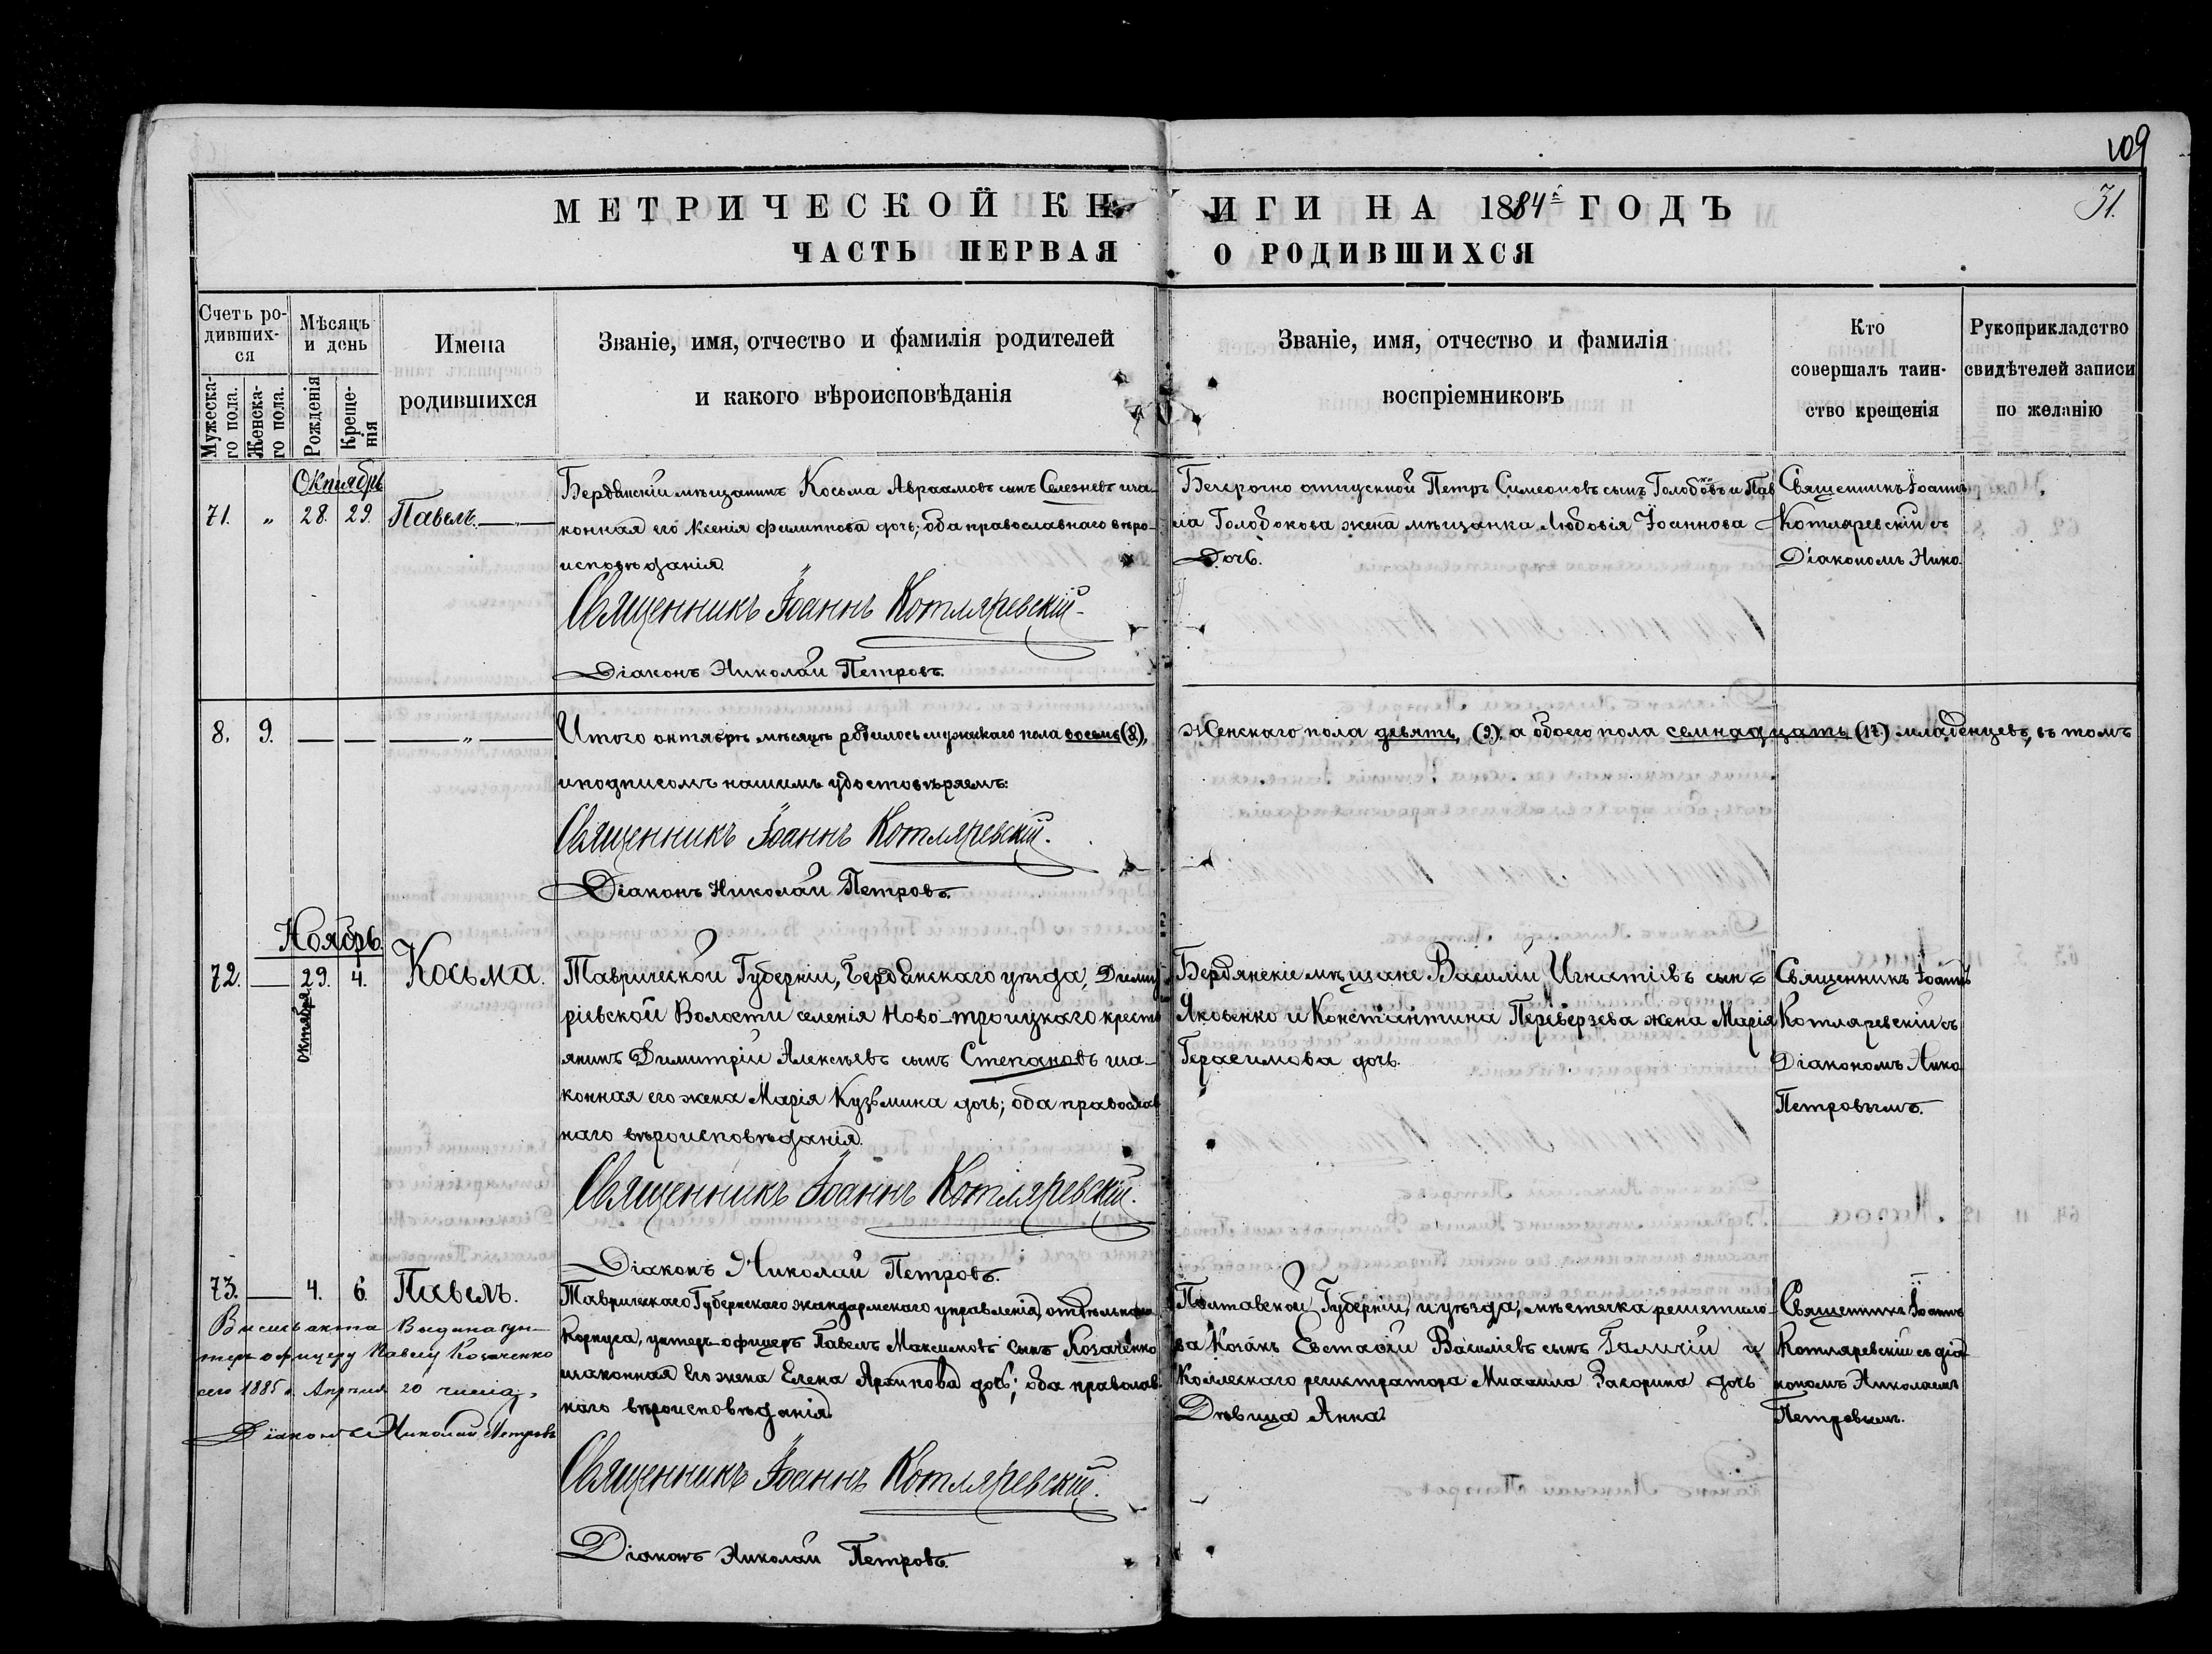 109
31.
МЕТРИЧЕСКОЙ КНИГИ НА 1884й ГОДЪ
ЧАСТЬ ПЕРВАЯ О РОДИВШИХСЯ
Счетъ ро-
дивших-
ся
Мужеска-
го пола.
Женска-
го пола.
Мѣсяцъ
и день
Рожденія
Креще-
нія
Имена
родившихся
Званіе, имя, отчество и фамилія родителей
и какого вѣроисповѣданія
Званіе, имя, отчество и фамилія
воспріемниковъ
Кто
совершалъ таин-
ство крещенія
Рукоприкладство
свидѣтелей записи
по желанію
Октябрь
71. „ 28. 29. Павелъ.
Бердянскій мѣщанинъ Косьма Авраамовъ сынъ Селезневъ и за-
конная его Ксенія Филиппова дочь; оба православнаго вѣро-
исповѣданія.
Священникъ Іоаннъ Котляревскій.
Діаконъ Николай Петровъ.
Безсрочно отпускной Петръ Симеоновъ сынъ и Пав
Голобокова жена мѣщанка Любовія Іоаннова
Дочь.
Священникъ Іоаннъ
Котляревскій съ
Діакономъ Нико.
8. 9. — — — „ —
Итого октябрѣ мѣсяцѣ родилось мужескаго пола восемь (8),
Женскаго пола девять, (9). а обоего пола семнадцать (17.) младенцевъ, въ томъ
и подписомъ нашимъ удостовѣряемъ:
Священникъ Іоаннъ Котляревскій.
Діаконъ Николай Петровъ.
Ноябрь.
72. — 29. 4. Косьма.
Октября.
Таврической Губерніи, Бердянскаго уѣзда, Димит
ріевской Волости селенія Ново-троицкаго кресть
янинъ Димитрій Алексѣевъ сынъ Степановъ и за-
конная его жена Марія Кузьмина дочь; оба православ
наго вѣроисповѣданія.
Священникъ Іоаннъ Котляревскій.
Діаконъ Николай Петровъ.
Бердянскіе мѣщане Василій Игнатіевъ сынъ
Яковенко и Константина Переверзева жена Марія
Герасимова дочь.
Священникъ Іоаннъ
Котляревскій съ
Діакономъ Нико
Петровымъ.
73. — 4. 6. Павелъ.
Выпись акта Выдана ун-
теръ офицеру Павлу Козаченко
сего 1885 г. Апрѣля 20 числа,
Діаконъ Николай Петровъ
Таврическаго Губернскаго жандармскаго управленія, отдѣльнаго
Корпуса, унтеръ-офицеръ Павелъ Максимовъ сынъ Козаченко
и законная Его жена Елена Архипова дочь; оба православ
наго вѣроисповѣданія.
Священникъ Іоаннъ Котляревскій.
Діаконъ Николай Петровъ.
Полтавской Губерніи, и уѣзда, мѣстечка решетило-
ва Козакъ Евстафій Василіевъ сынъ Галичій и
Коллежскаго регистратора Михаила Загорина дочь
Дѣвица Анна.
Священникъ Іоаннъ
Котляревскій съ діа
кономъ Николаемъ
Петровымъ.